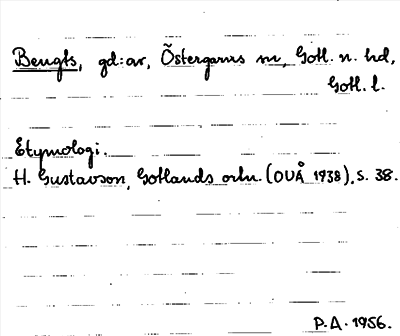 Bengts, gd:ar, Östergarns sn, Gotl. n. hd,
Gotl. l.
Etymologi.
H. Gustavson, Gotlands ortn. (OUÅ 1938), s. 38.
P.A. 1956.